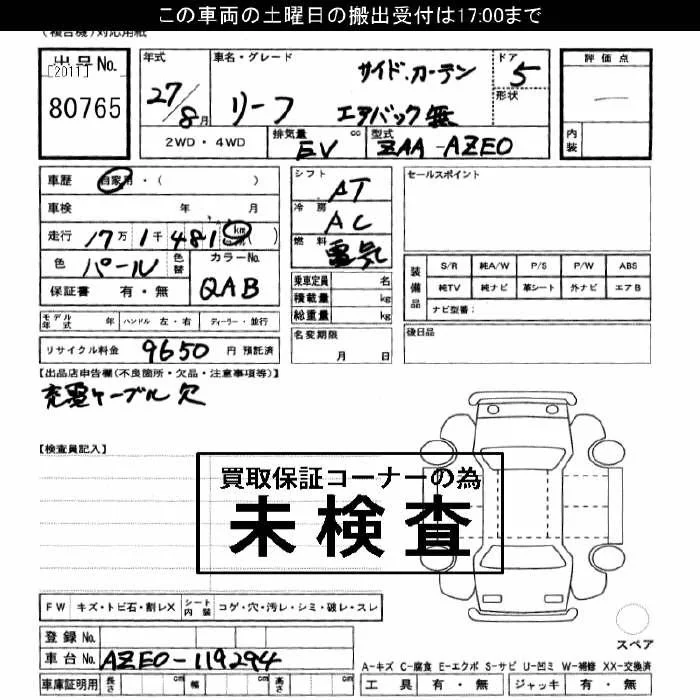 この車両の土曜日の搬出受付は17:00まで
(複合機)対応用紙
出品No.
[2011]
80765
年式 27/8月
車名・グレード
リーフ
サイド.カーテン
エアバック無
ドア 5
形状
評価点
内装
2WD・4WD
排気量 EV cc
型式 ZAA-AZE0
車歴 自家用・( )
車検 年 月
走行 17万1千481km( )
色 パール 色替
カラーNo. QAB
保証書 有・無
モデル年式 年 ハンドル 左・右 ディーラー・並行
リサイクル料金 9650 円 預託済
シフト AT
冷房 AC
燃料 電気
乗車定員 名
積載量 kg
総重量 kg
名変期限
月 日
セールスポイント
装備品
S/R 純A/W P/S P/W ABS
純TV 純ナビ 革シート 外ナビ エアB
ナビ型番:
後日品
【出品店申告欄(不良箇所・欠品・注意事項等)】
充電ケーブル欠
【検査員記入】
買取保証コーナーの為
未検査
FW キズ・トビ石・割レX シート内装 コゲ・穴・汚レ・シミ・破レ・スレ
登録No.
車台No. AZE0-119294
車庫証明用 長さ cm 幅 cm 高さ cm
スペア
A-キズ C-腐食 E-エクボ S-サビ U-凹ミ W-補修 XX-交換済
工具 有・無 ジャッキ 有・無